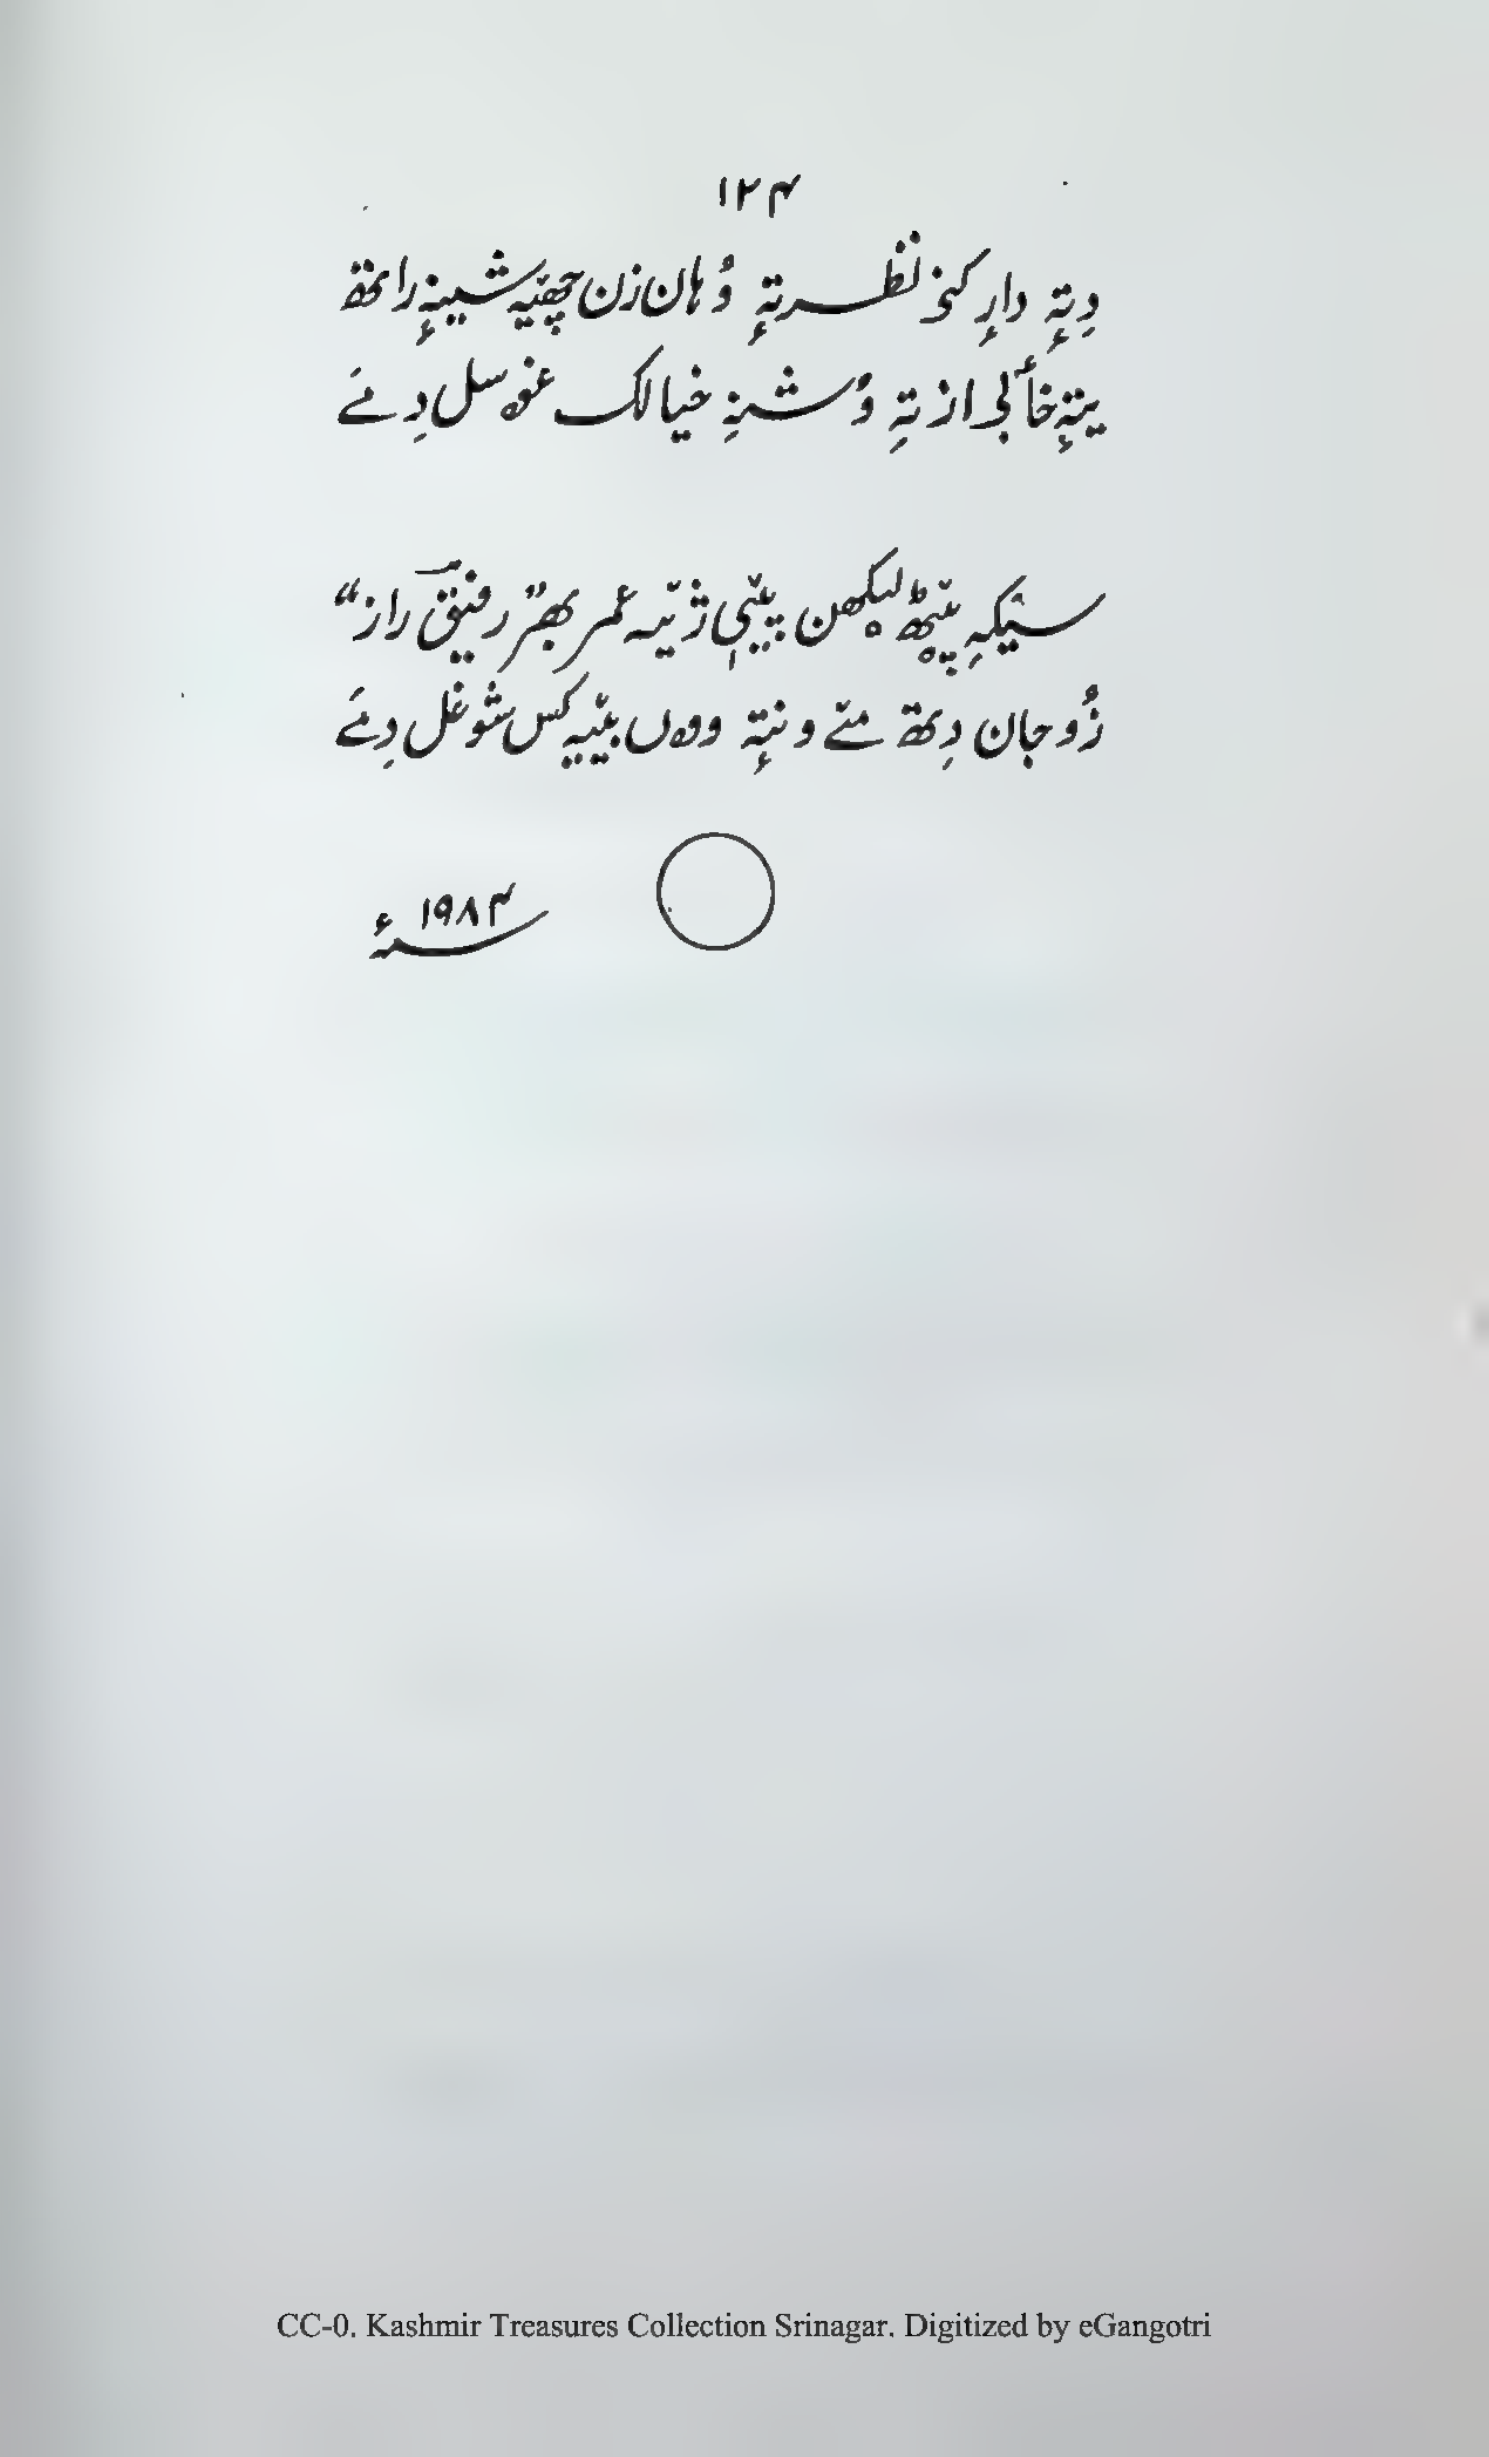 ۱۲۴
دِتہٕ دارِ کنۍ نظر تہٕ وُہان زن چھیٚہ شیٖنہٕ راتھ
یتہٕ خٲلی از تہِ وُشنہِ خیالک غۄسل دِمے
سیٚکہِ پیٚٹھ لیکھن پییٚیٖ ژیٚہ عمر بھر ”رفیق راز“
زُو جان دِتھ مےٚ ونتہٕ وۄں بیٚیہ کس شوغل دِمے
۱۹۸۴ء
CC-0. Kashmir Treasures Collection Srinagar. Digitized by eGangotri